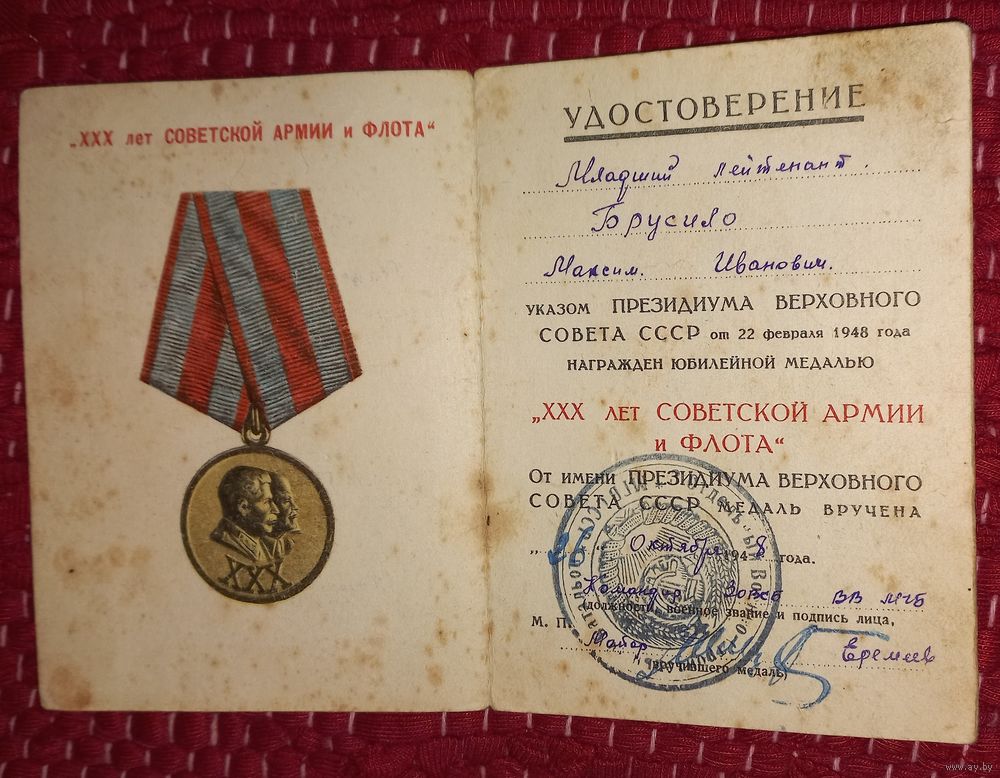 „XXX лет СОВЕТСКОЙ АРМИИ и ФЛОТА“
XXX
УДОСТОВЕРЕНИЕ
Младший лейтенант.
Брусило
Максим. Иванович.
УКАЗОМ ПРЕЗИДИУМА ВЕРХОВНОГО
СОВЕТА СССР от 22 февраля 1948 года
НАГРАЖДЕН ЮБИЛЕЙНОЙ МЕДАЛЬЮ
„XXX лет СОВЕТСКОЙ АРМИИ
и ФЛОТА“
От имени ПРЕЗИДИУМА ВЕРХОВНОГО
СОВЕТА СССР МЕДАЛЬ ВРУЧЕНА
Октября 1948 года.
Командир ВВ МГБ
(должность, военное звание и подпись лица,
М. П.
Майор Еремеев
вручившего медаль)
www.ay.by